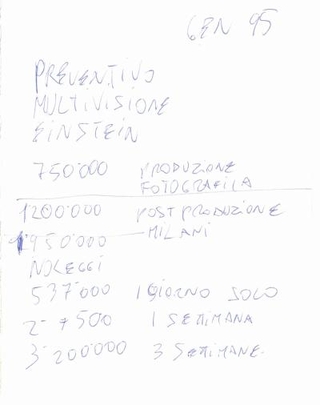 GEN 95
PREVENTIVO
MULTIVISIONE
EINSTEIN
750'000 PRODUZIONE
FOTOGRAFICA
1200'000 POST PRODUZIONE
1'950'000 MILANI
NOLEGGI
537'000 1 GIORNO SOLO
2 7500 1 SETTIMANA
3'200000 3 SETTIMANE.